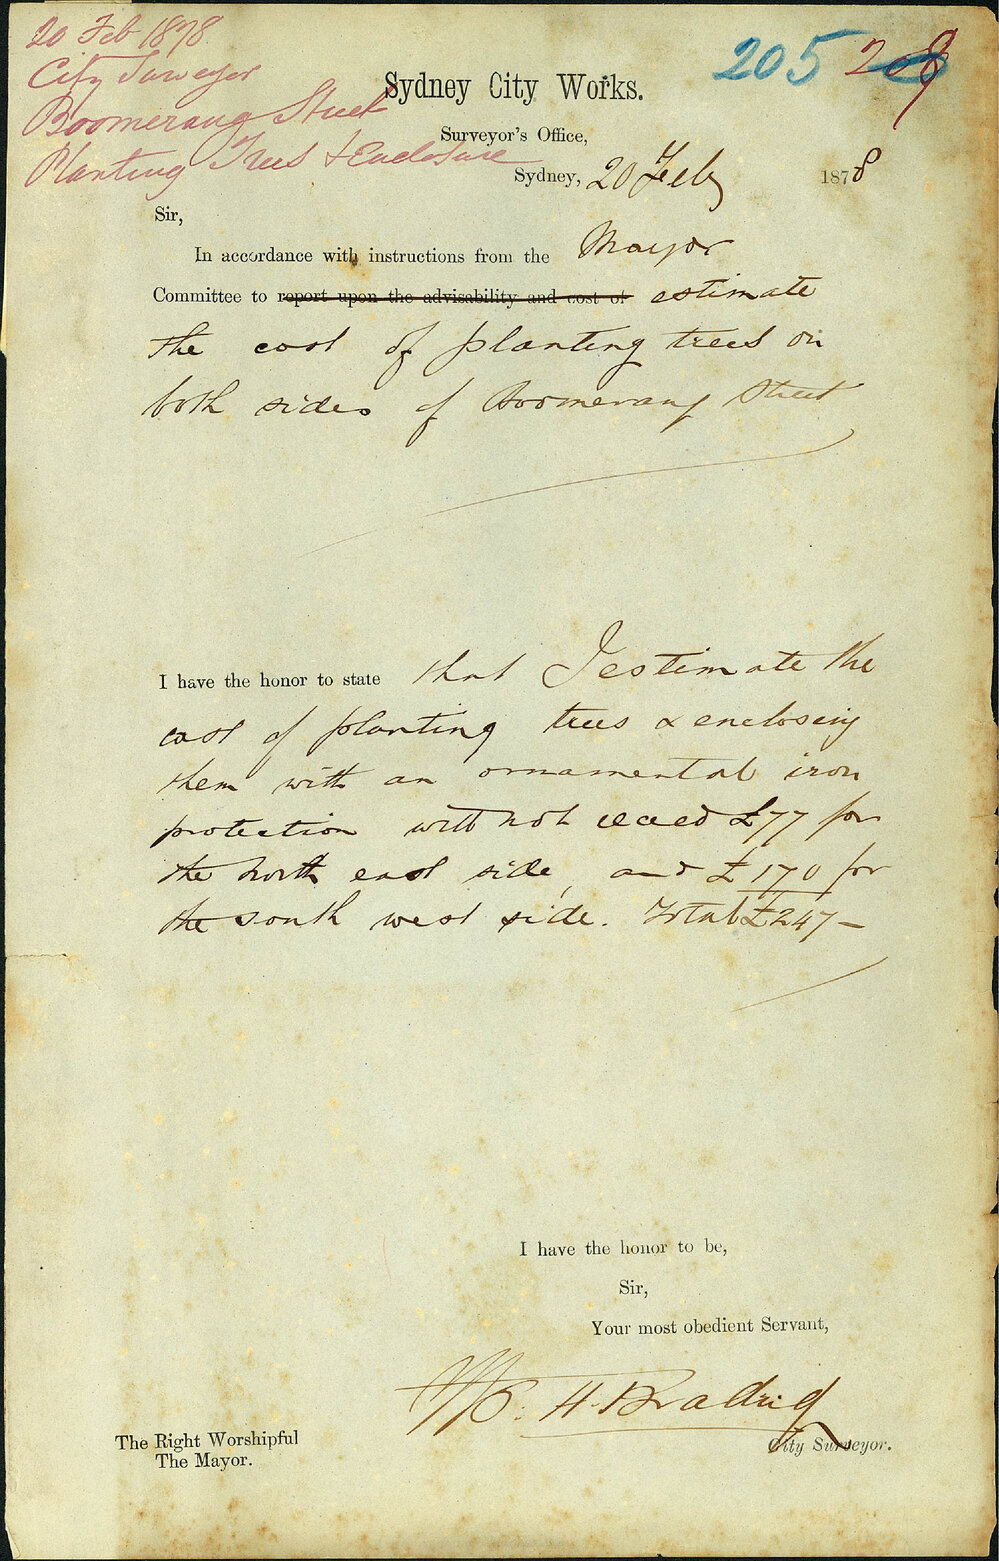 20 Feb 1878
City Surveyor
Boomerang Street
Planting Trees & Enclosure
205 208
Sydney City Works.
Surveyor's Office,
Sydney, 20 Feby 1878
Sir,
In accordance with instructions from the Mayor
Committee to report upon the advisability and cost of estimate
the cost of planting trees on
both sides of Boomerang Street
I have the honor to state that I estimate the
cost of planting trees & enclosing
them with an ornamental iron
protection will not exceed £77 for
the north east side, and £170 for
the south west side. Total £247 –
I have the honor to be,
Sir,
Your most obedient Servant,
City Surveyor.
The Right Worshipful
The Mayor.